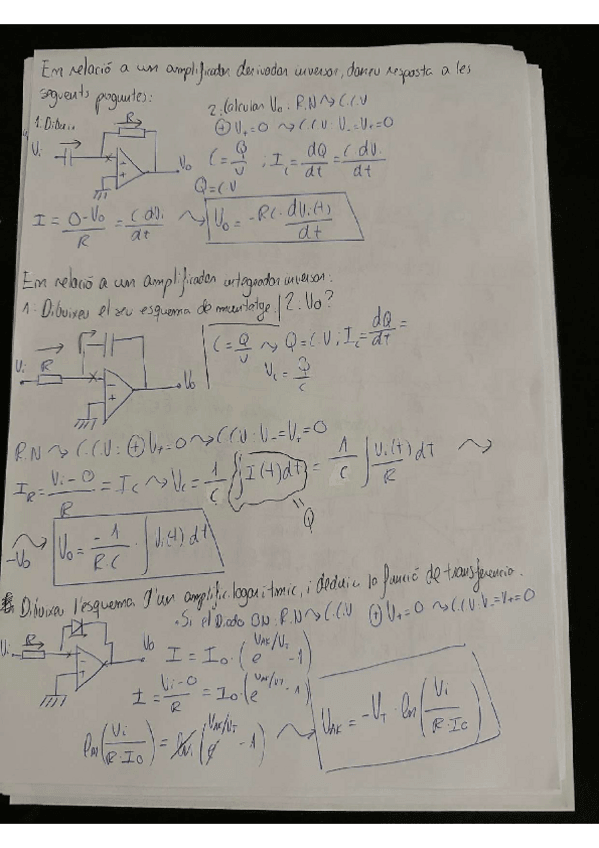 En relació a un amplificador derivador inversor, doneu resposta a les
següents preguntes:
1. Dibuix
2. Calcular Vo. R.N ⤳ C.C.V
⊕ V+=0 ⤳ C.C.V: V-=V+=0
R
Vi
Vo
C = Q/V ; Ic = dQ/dt = C.dVi/dt
Q=CV
I = 0-Vo/R = C dVi/dt ⤳ Vo = -RC. dVi(t)/dt
En relació a un amplificador integrador inversor:
1. Dibuixeu el seu esquema de muntatge. 2. Vo?
Vi R
Vo
C = Q/V ⤳ Q = C.V ; Ic = dQ/dt =
Vc = Q/C
R.N ⤳ C.C.V: ⊕ V+=0 ⤳ C.C.V: V-=V+=0
IR = Vi-0/R = Ic ⤳ Vc = 1/C ∫ I(t)dt = 1/C ∫ Vi(t)/R dt ⤳
"Q
-Vo
Vo = -1/R.C . ∫ Vi(t) dt
Dibuixeu l'esquema d'un amplific. logarítmic, i deduiu la funció de transferencia.
. Si el Diodo ON: R.N ⤳ C.C.V ⊕ V+=0 ⤳ C.C.V: V-=V+=0
Vi R
Vo
I = Io.(e^VAK/VT -1)
I = Vi-0/R = Io.(e^VAK/VT -1)
ln(Vi/R.Io) = ln(e^VAK/VT -1) ⤳ VAK = -VT . ln(Vi/R.Io)